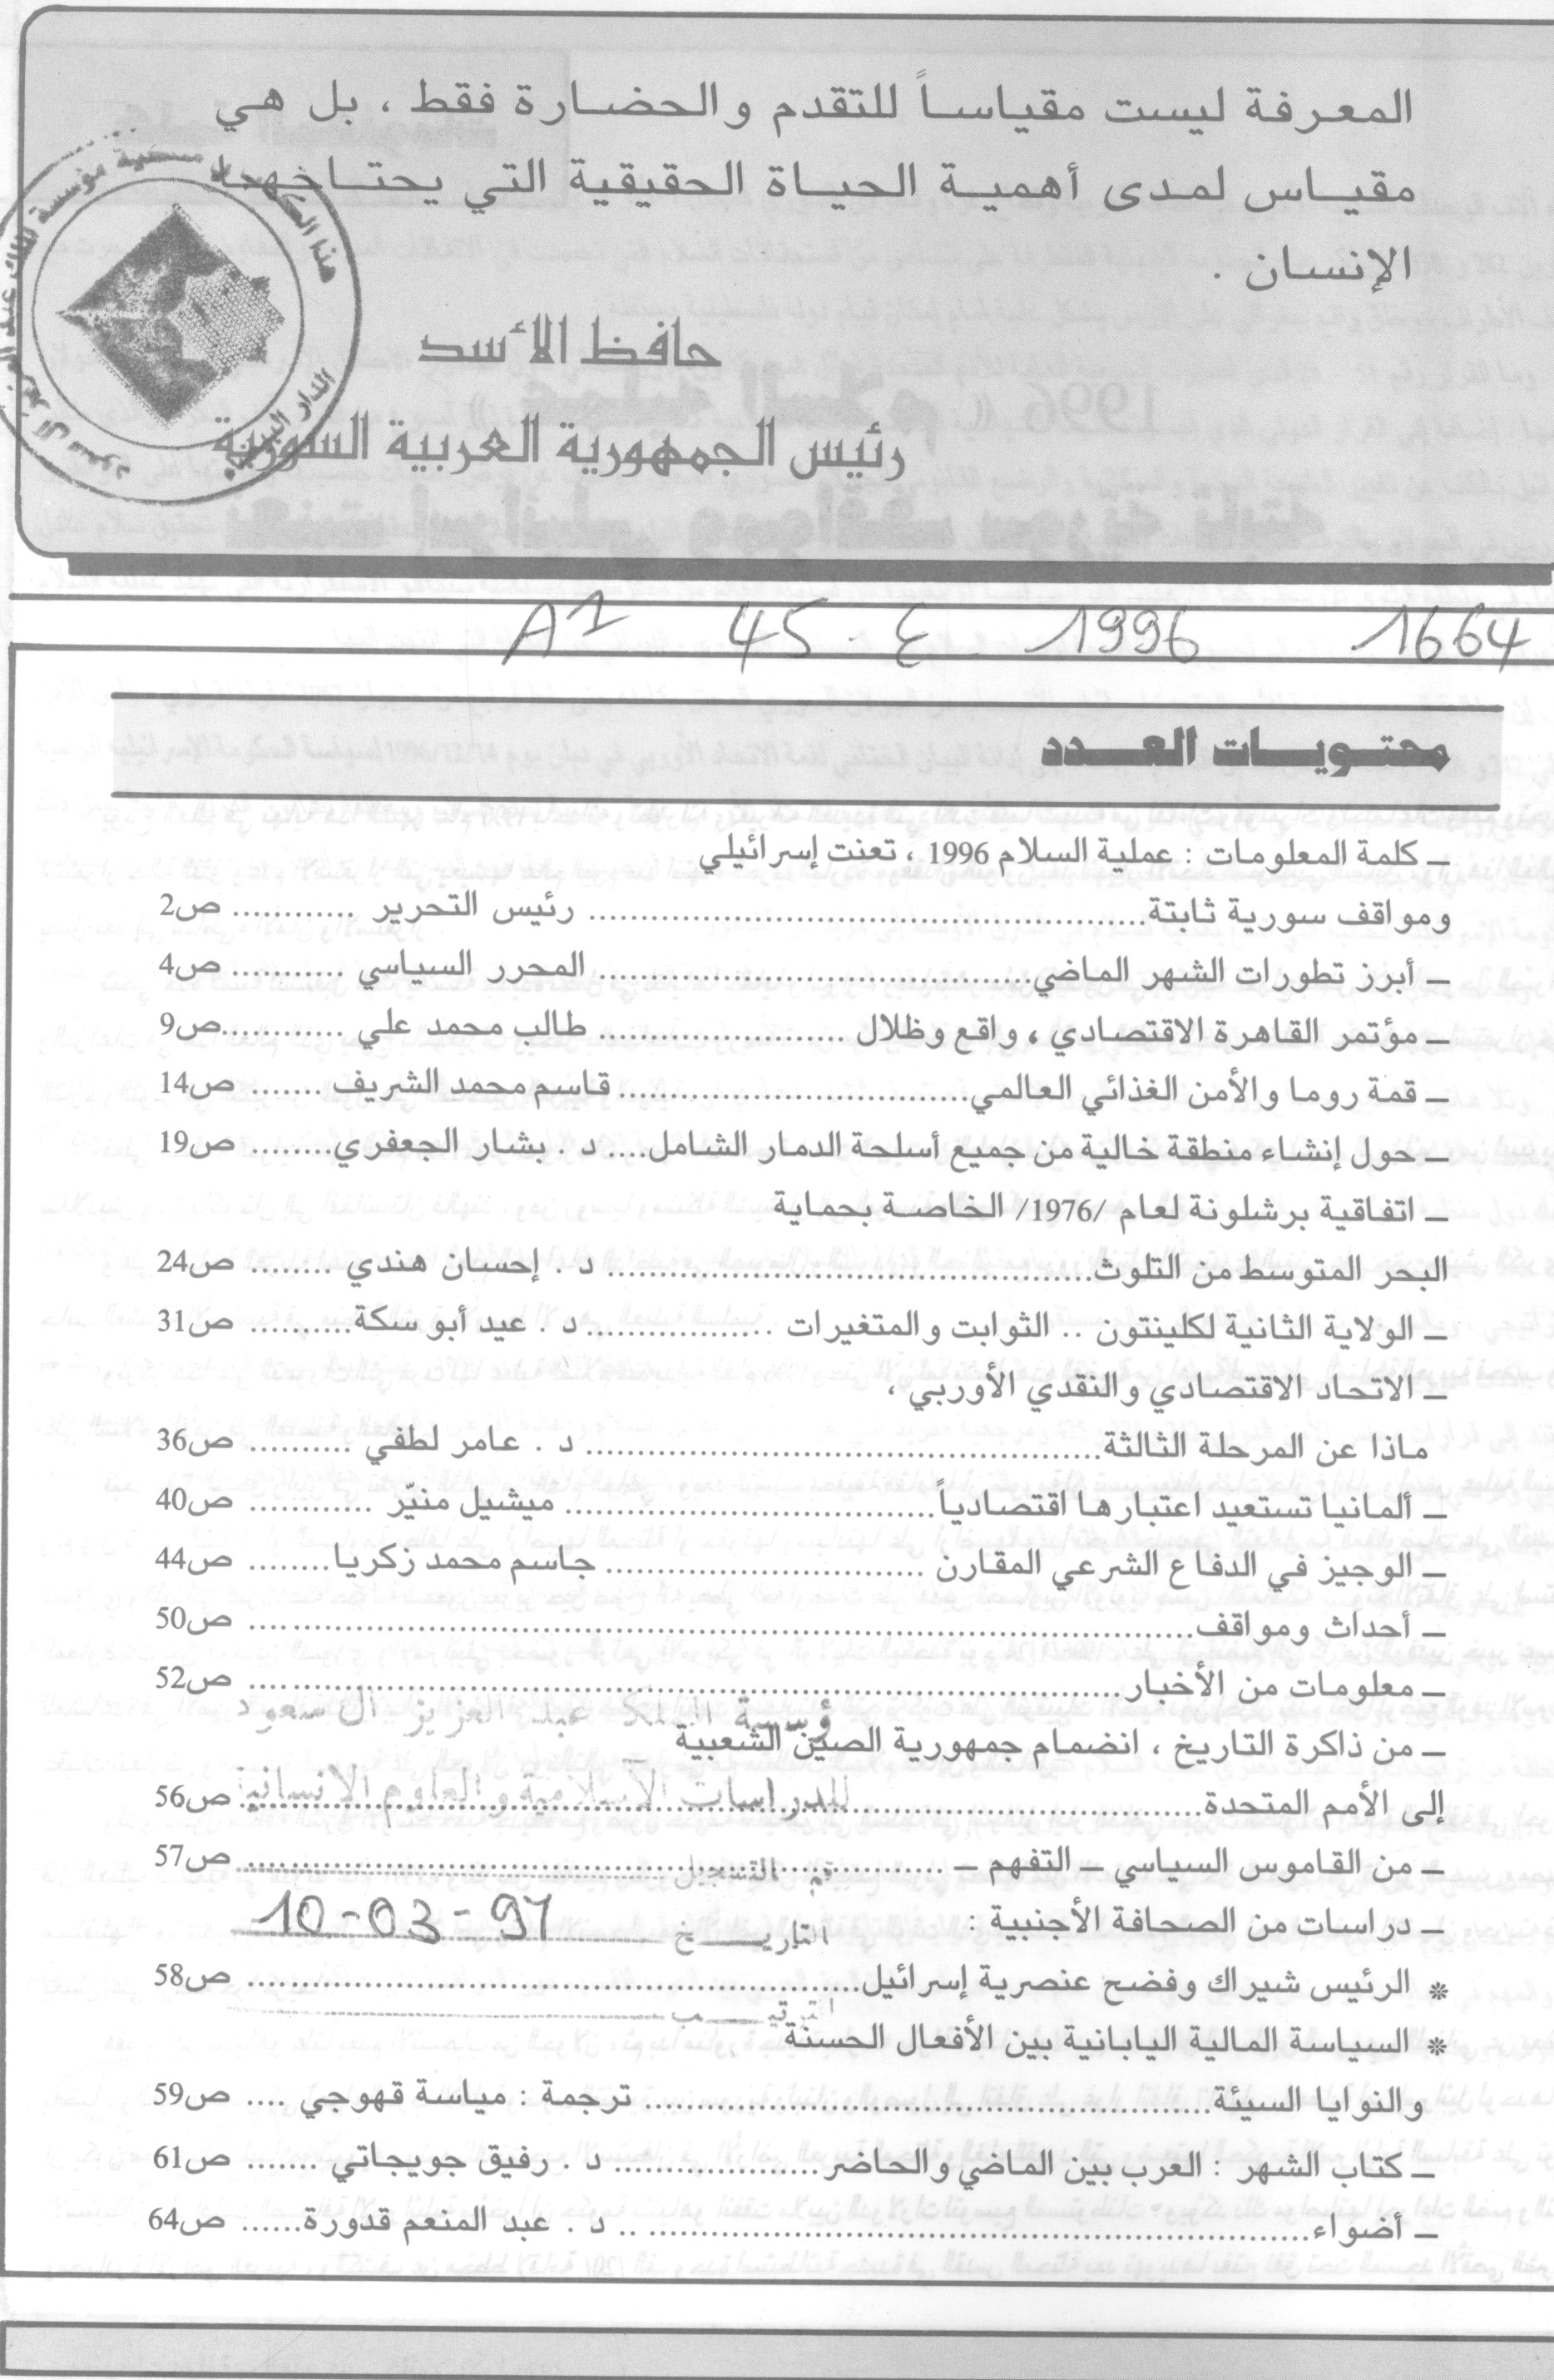 المعرفة ليست مقياساً للتقدم والحضارة فقط ، بل هي
مقياس لمدى أهمية الحياة الحقيقية التي يحتاجها
الإنسان .
حافظ الأسد
رئيس الجمهورية العربية السورية
A1 45 . ع 1996 1664
محتويات العدد
ــ كلمة المعلومات : عملية السلام 1996 ، تعنت إسرائيلي
ومواقف سورية ثابتة........ رئيس التحرير ............ ص2
ــ أبرز تطورات الشهر الماضي........ المحرر السياسي ........... ص4
ــ مؤتمر القاهرة الاقتصادي ، واقع وظلال ........ طالب محمد علي ............ص9
ــ قمة روما والأمن الغذائي العالمي........ قاسم محمد الشريف ....... ص14
ــ حول إنشاء منطقة خالية من جميع أسلحة الدمار الشامل.... د . بشار الجعفري........ ص19
ــ اتفاقية برشلونة لعام /1976/ الخاصة بحماية
البحر المتوسط من التلوث........ د . إحسان هندي ........ ص24
ــ الولاية الثانية لكلينتون .. الثوابت والمتغيرات ........د . عيد أبو سكة.......... ص31
ــ الاتحاد الاقتصادي والنقدي الأوربي ،
ماذا عن المرحلة الثالثة........ د . عامر لطفي .......... ص36
ــ ألمانيا تستعيد اعتبارها اقتصادياً........ ميشيل منيّر ............ ص40
ــ الوجيز في الدفاع الشرعي المقارن ........ جاسم محمد زكريا........ ص44
ــ أحداث ومواقف........ ص50
ــ معلومات من الأخبار........ ص52
مؤسسة الملك عبد العزيز آل سعود
ــ من ذاكرة التاريخ ، انضمام جمهورية الصين الشعبية
للدراسات الاسلامية والعلوم الانسانية
إلى الأمم المتحدة........ ص56
ــ من القاموس السياسي ــ التفهم ــ ........ ص57
رقم التسجيل
ــ دراسات من الصحافة الأجنبية :
التاريخ 10-03-97
* الرئيس شيراك وفضح عنصرية إسرائيل........ ص58
الترتيب
* السياسة المالية اليابانية بين الأفعال الحسنة
والنوايا السيئة........ ترجمة : مياسة قهوجي .... ص59
ــ كتاب الشهر : العرب بين الماضي والحاضر........ د . رفيق جويجاتي ....... ص61
ــ أضواء........ د . عبد المنعم قدورة...... ص64